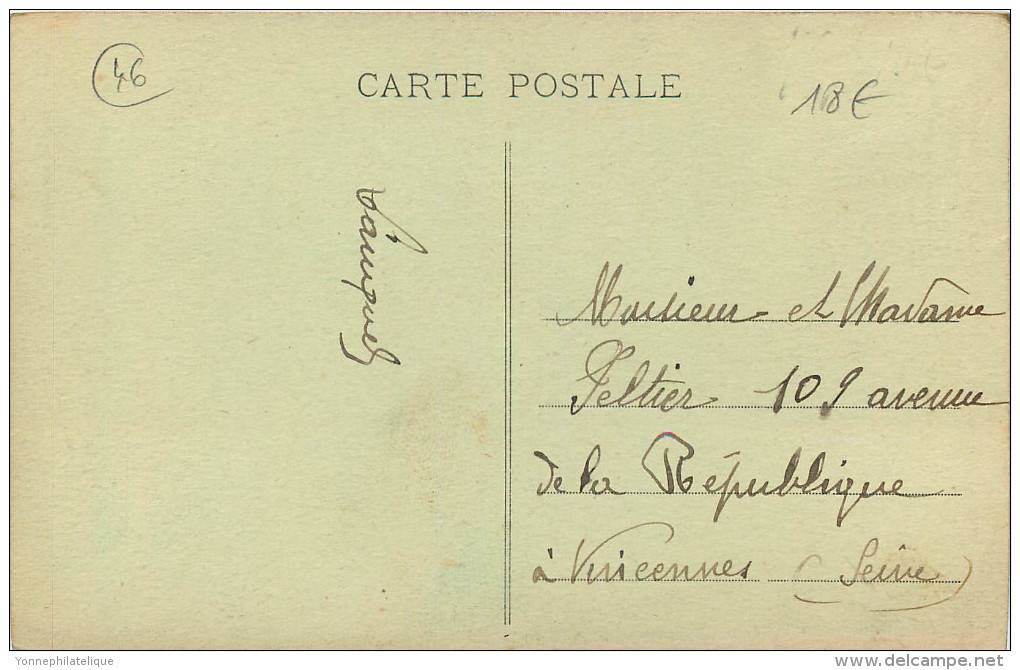 46
CARTE POSTALE
18€
Monsieur et Madame
Peltier 109 avenue
de la République
à Vincennes (Seine)
Yonnephilatelique
www.delcampe.net